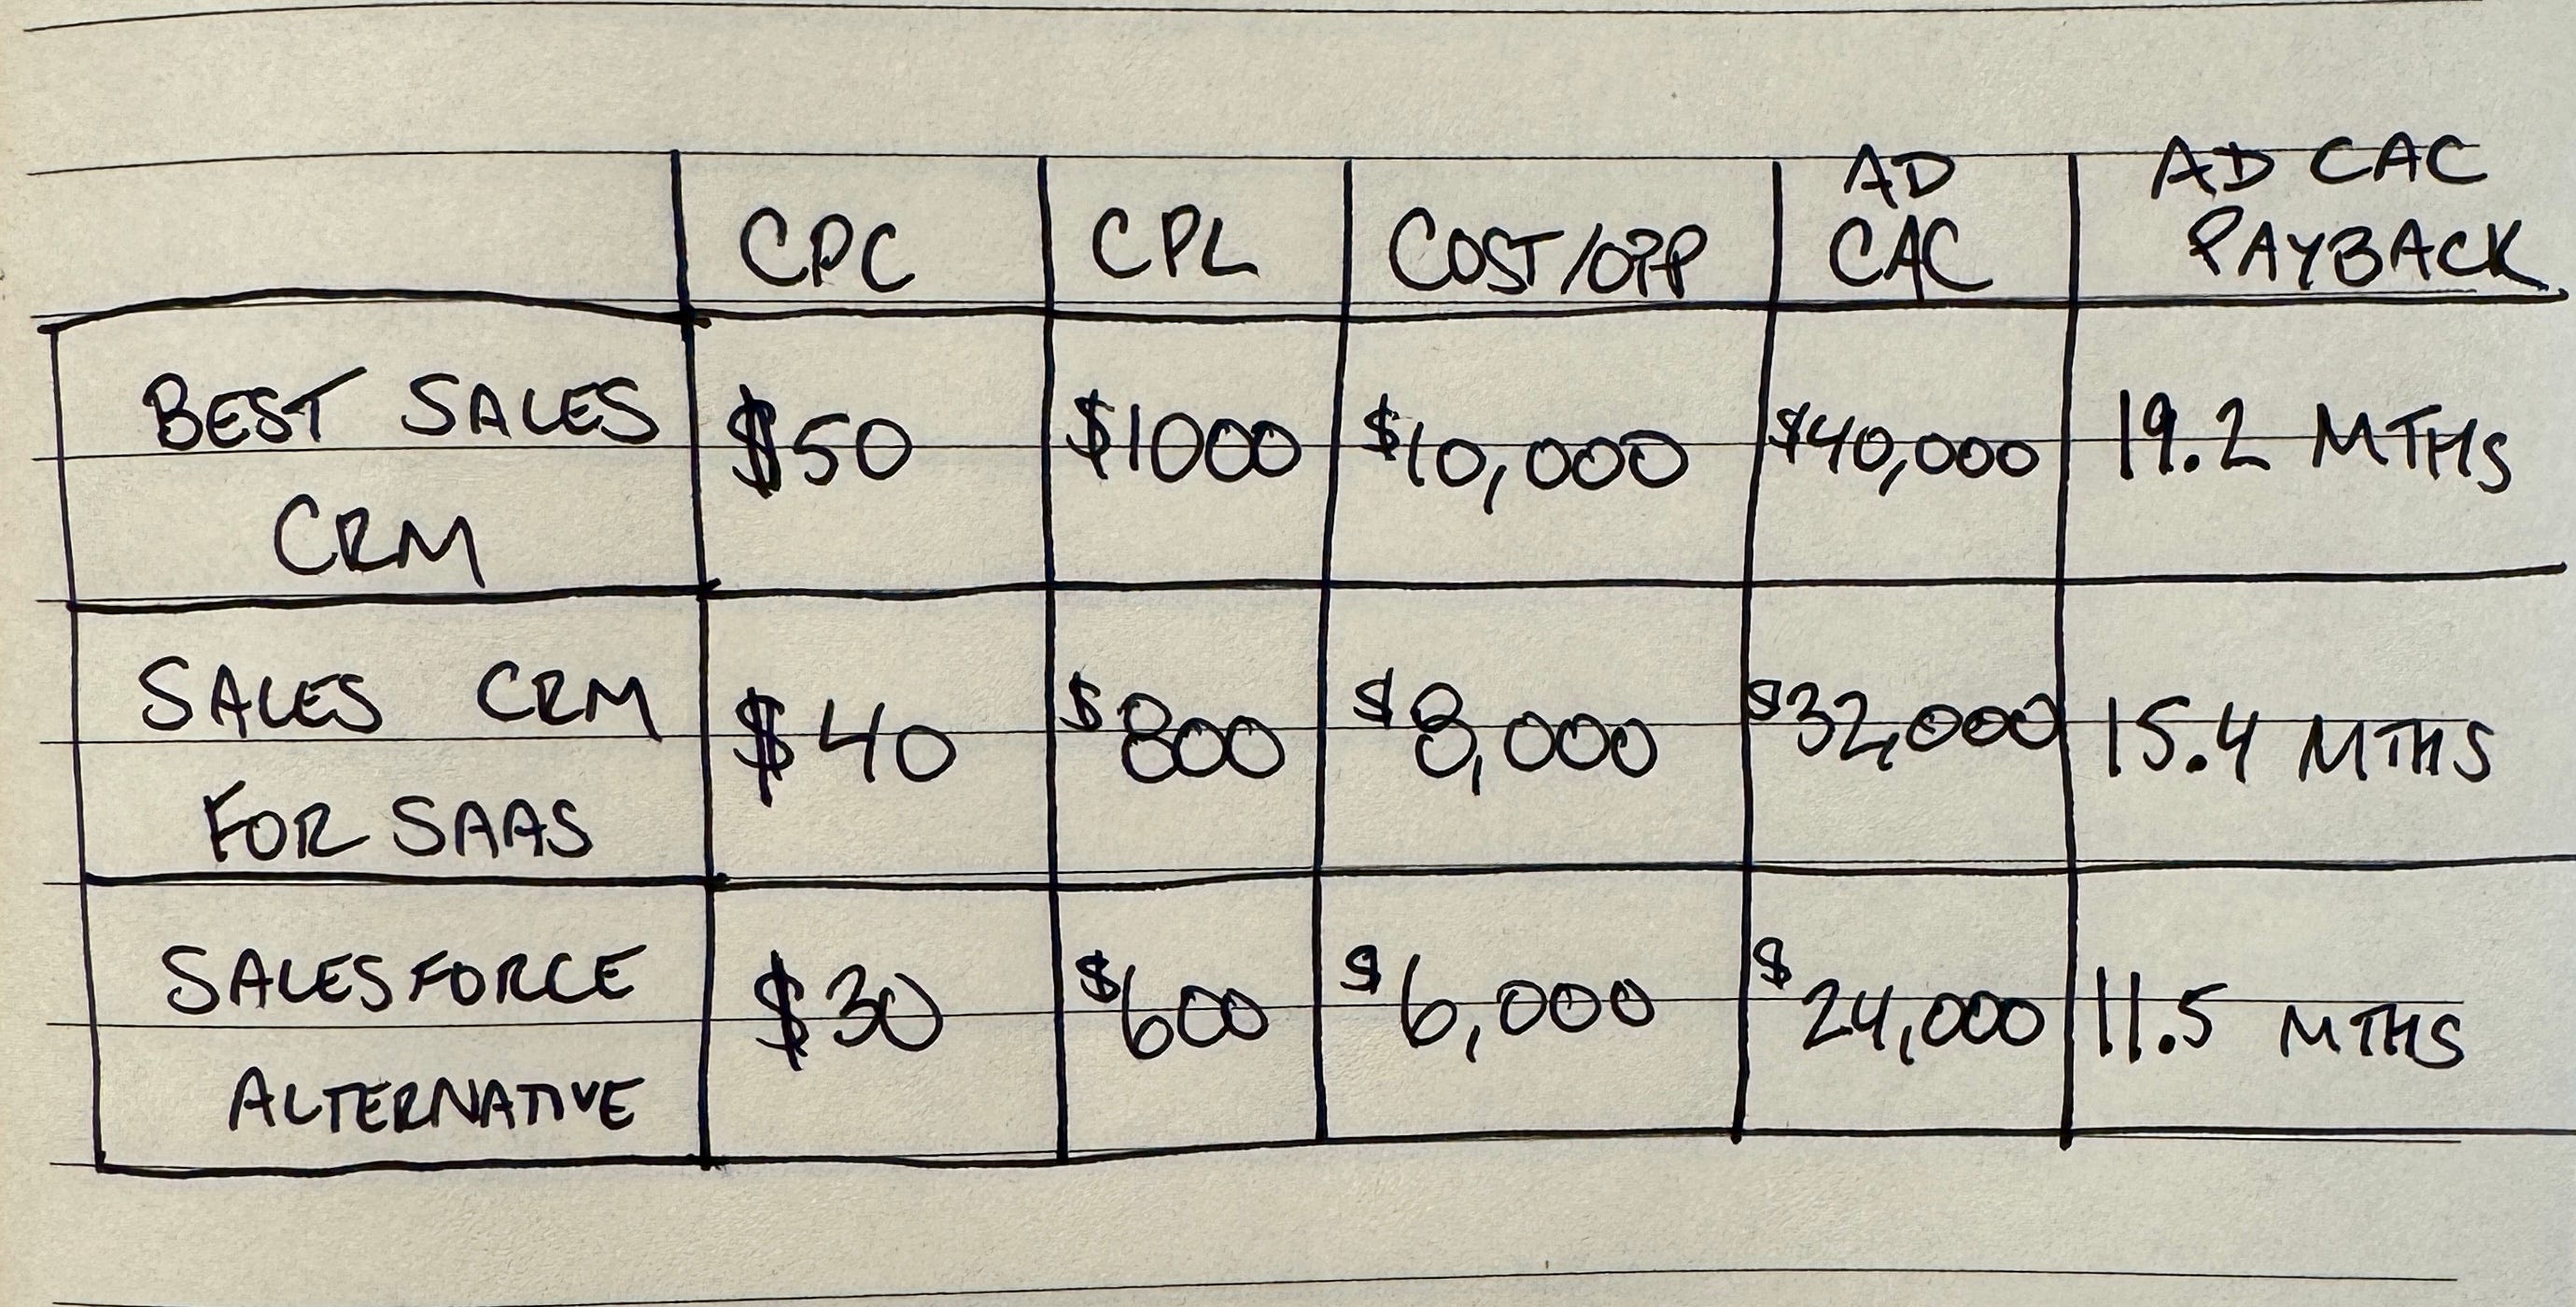 AD AD CAC
CPC CPL COST/OPP CAC PAYBACK
BEST SALES
$50 $1000 $10,000 $40,000 19.2 MTHS
CRM
SALES CRM
$40 $800 $8,000 $32,000 15.4 MTHS
FOR SAAS
SALESFORCE
$30 $600 $6,000 $24,000 11.5 MTHS
ALTERNATIVE